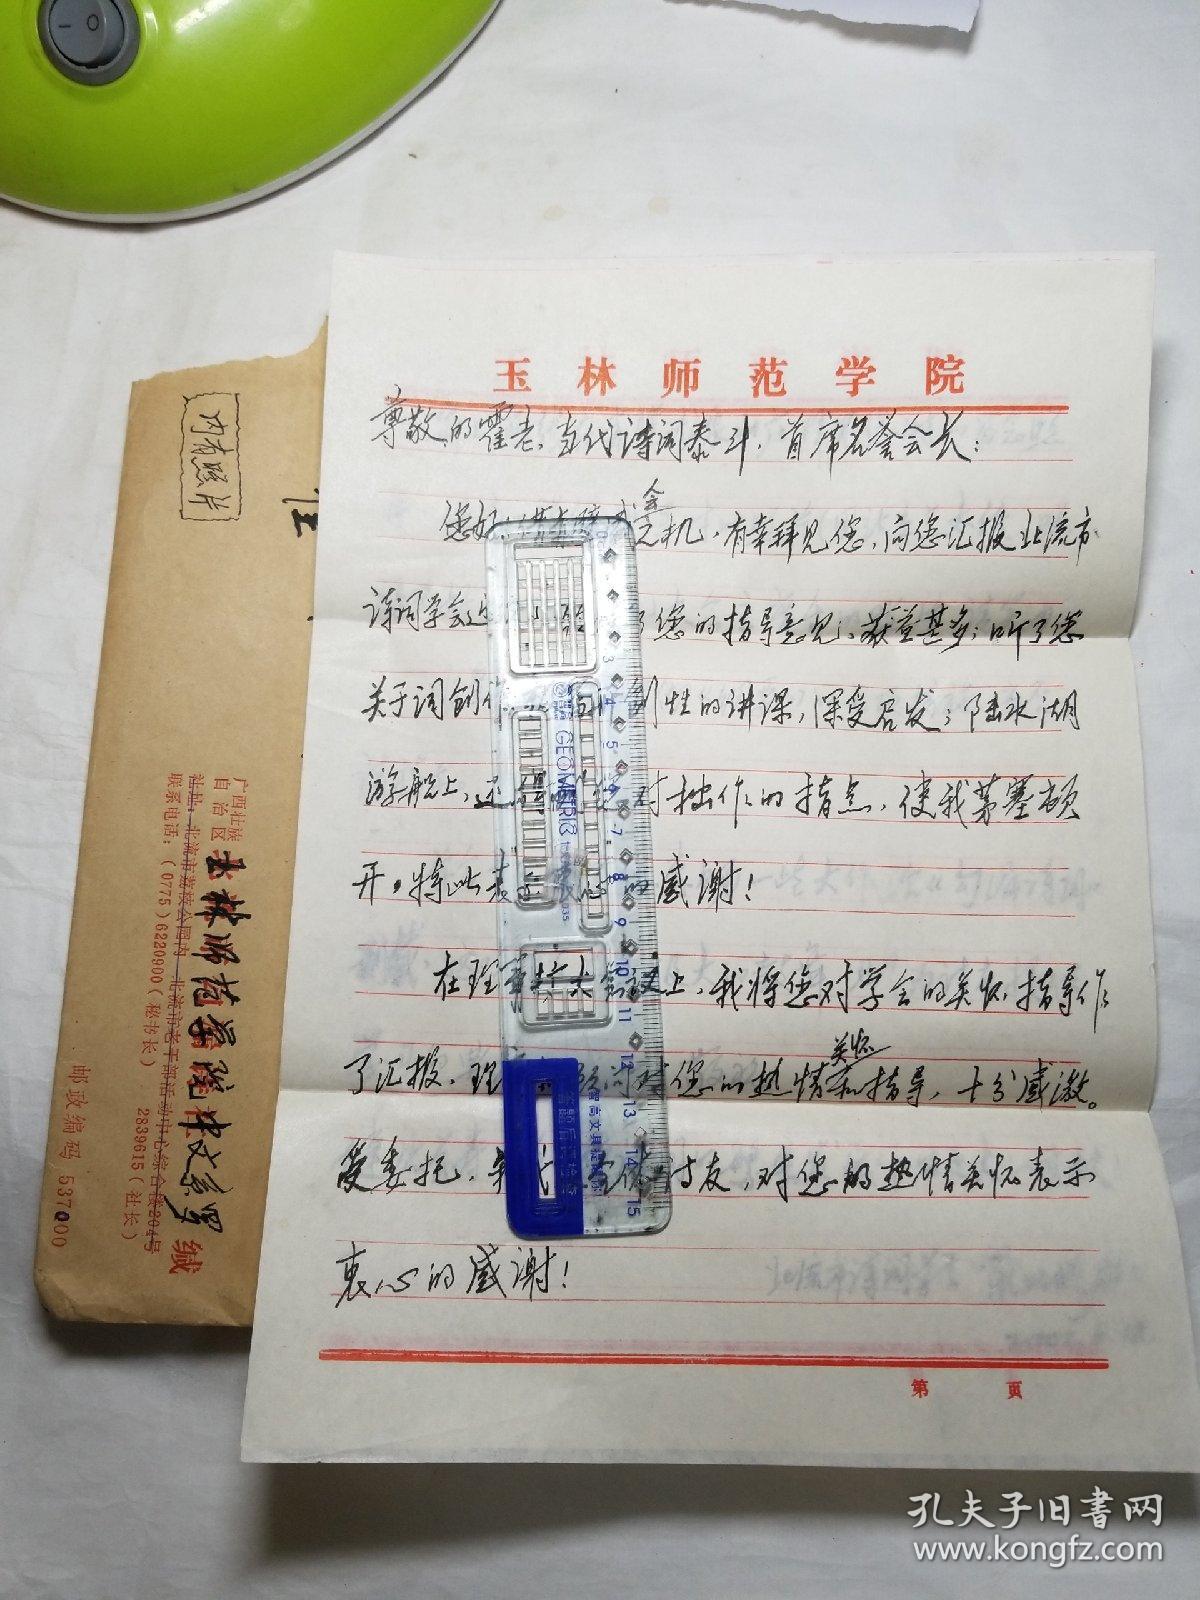 玉林师范学院
尊敬的霍老、当代诗词泰斗、首席名誉会长:
您好! 会之机,有幸拜见您,向您汇报北流市
诗词学会 了您的指导意见、获益甚多;听了您
关于词创 性的讲课,深受启发;陆水湖
游船上,还 对拙作的指点,使我茅塞顿
开。特此表 感谢!
在理事扩大会议上,我将您对学会的关怀、指导作
了汇报、理 对您的热情关怀和指导,十分感激。
受委托, 诗友,对您的热情关怀表示
衷心的感谢!
第 页
内有照片
广西壮族
自治区
玉林师范学院中文系 缄
社址:北流市荔枝公园内 北流市老干部活动中心综合楼204号
联系电话:(0775)6220900(秘书长) 2839615(社长)
邮政编码 537000
GEOMETRIC
3 4 5 6 7 8 9 10 11 12 13 14 15
孔夫子旧书网
www.kongfz.com